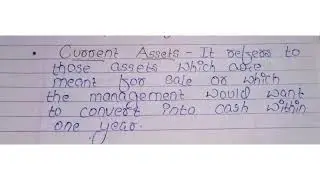 • Current Assets - It refers to
those assets which are
meant for sale or which
the management would want
to convert into cash within
one year.